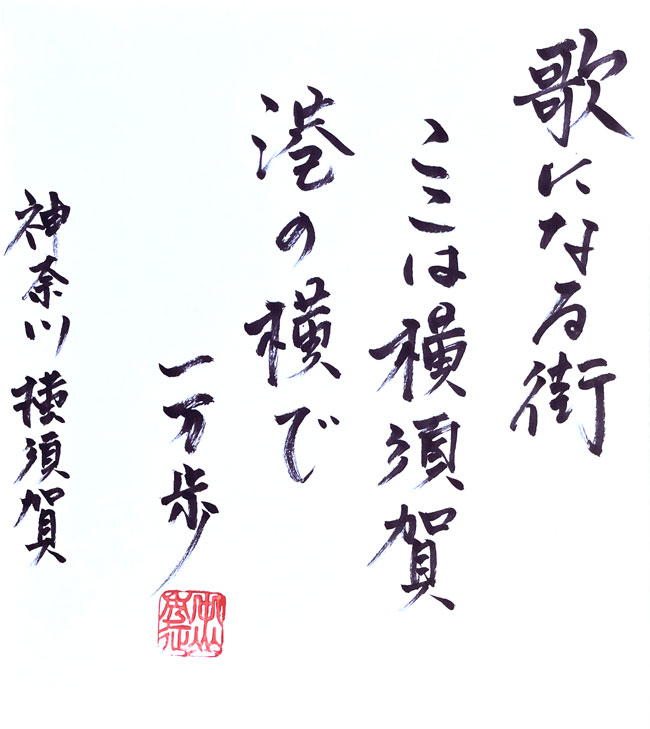 歌になる街
ここは横須賀
港の横で
一万歩
神奈川 横須賀